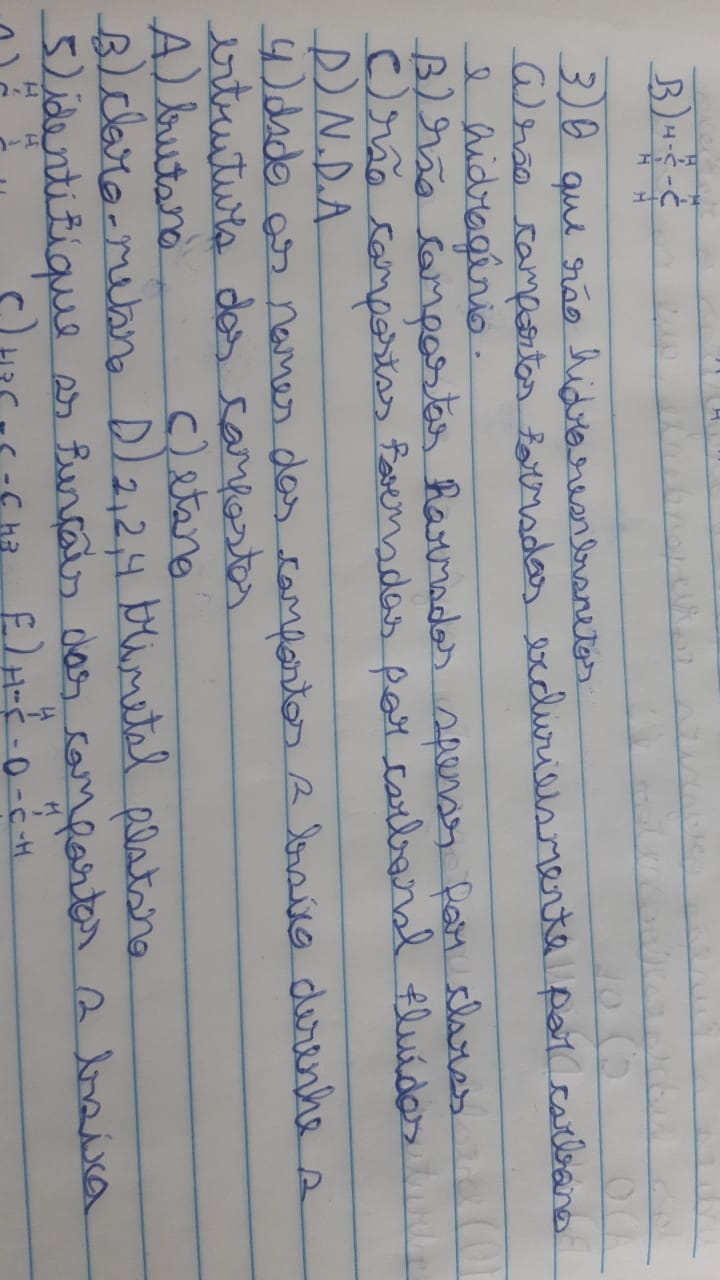 B) H-C-C
3) O que são hidrocarbonetos
a) são compostos formados exclusivamente por carbono
e hidrogênio.
B) são compostos formados apenas por cloros
C) são compostos formados por carbonal fluídos
D) N.D.A
4) dado os nomes dos compostos a baixo desenhe a
estrutura dos compostos
A) butano C) etano
B) cloro-metano D) 2,2,4 trimetal pentano
5) identifique as função dos compostos a baixa
C) H3C-C-CH3 E) H-C-O-C-H